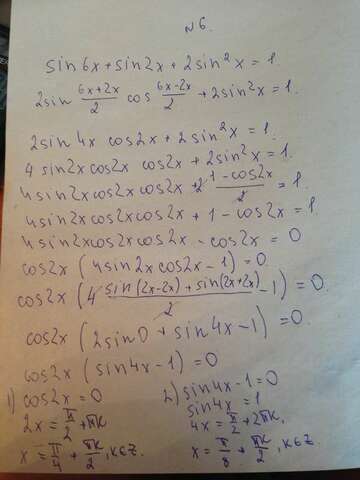 N6.
sin6x + sin2x + 2sin²x = 1.
2sin (6x+2x)/2 cos (6x-2x)/2 + 2sin²x = 1.
2sin4x cos2x + 2sin²x = 1.
4sin2x cos2x cos2x + 2sin²x = 1.
4sin2x cos2x cos2x + 2 (1-cos2x)/2 = 1.
4sin2x cos2x cos2x + 1 - cos2x = 1
4sin2x cos2x cos2x - cos2x = 0
cos2x (4sin2x cos2x - 1) = 0.
cos2x (4 (sin(2x-2x) + sin(2x+2x))/2 - 1) = 0.
cos2x (2sin0 + sin4x - 1) = 0.
cos2x (sin4x - 1) = 0
1) cos2x = 0
2x = π/2 + πk
x = π/4 + πk/2, k∈Z.
2) sin4x - 1 = 0
sin4x = 1
4x = π/2 + 2πk,
x = π/8 + πk/2, k∈Z.